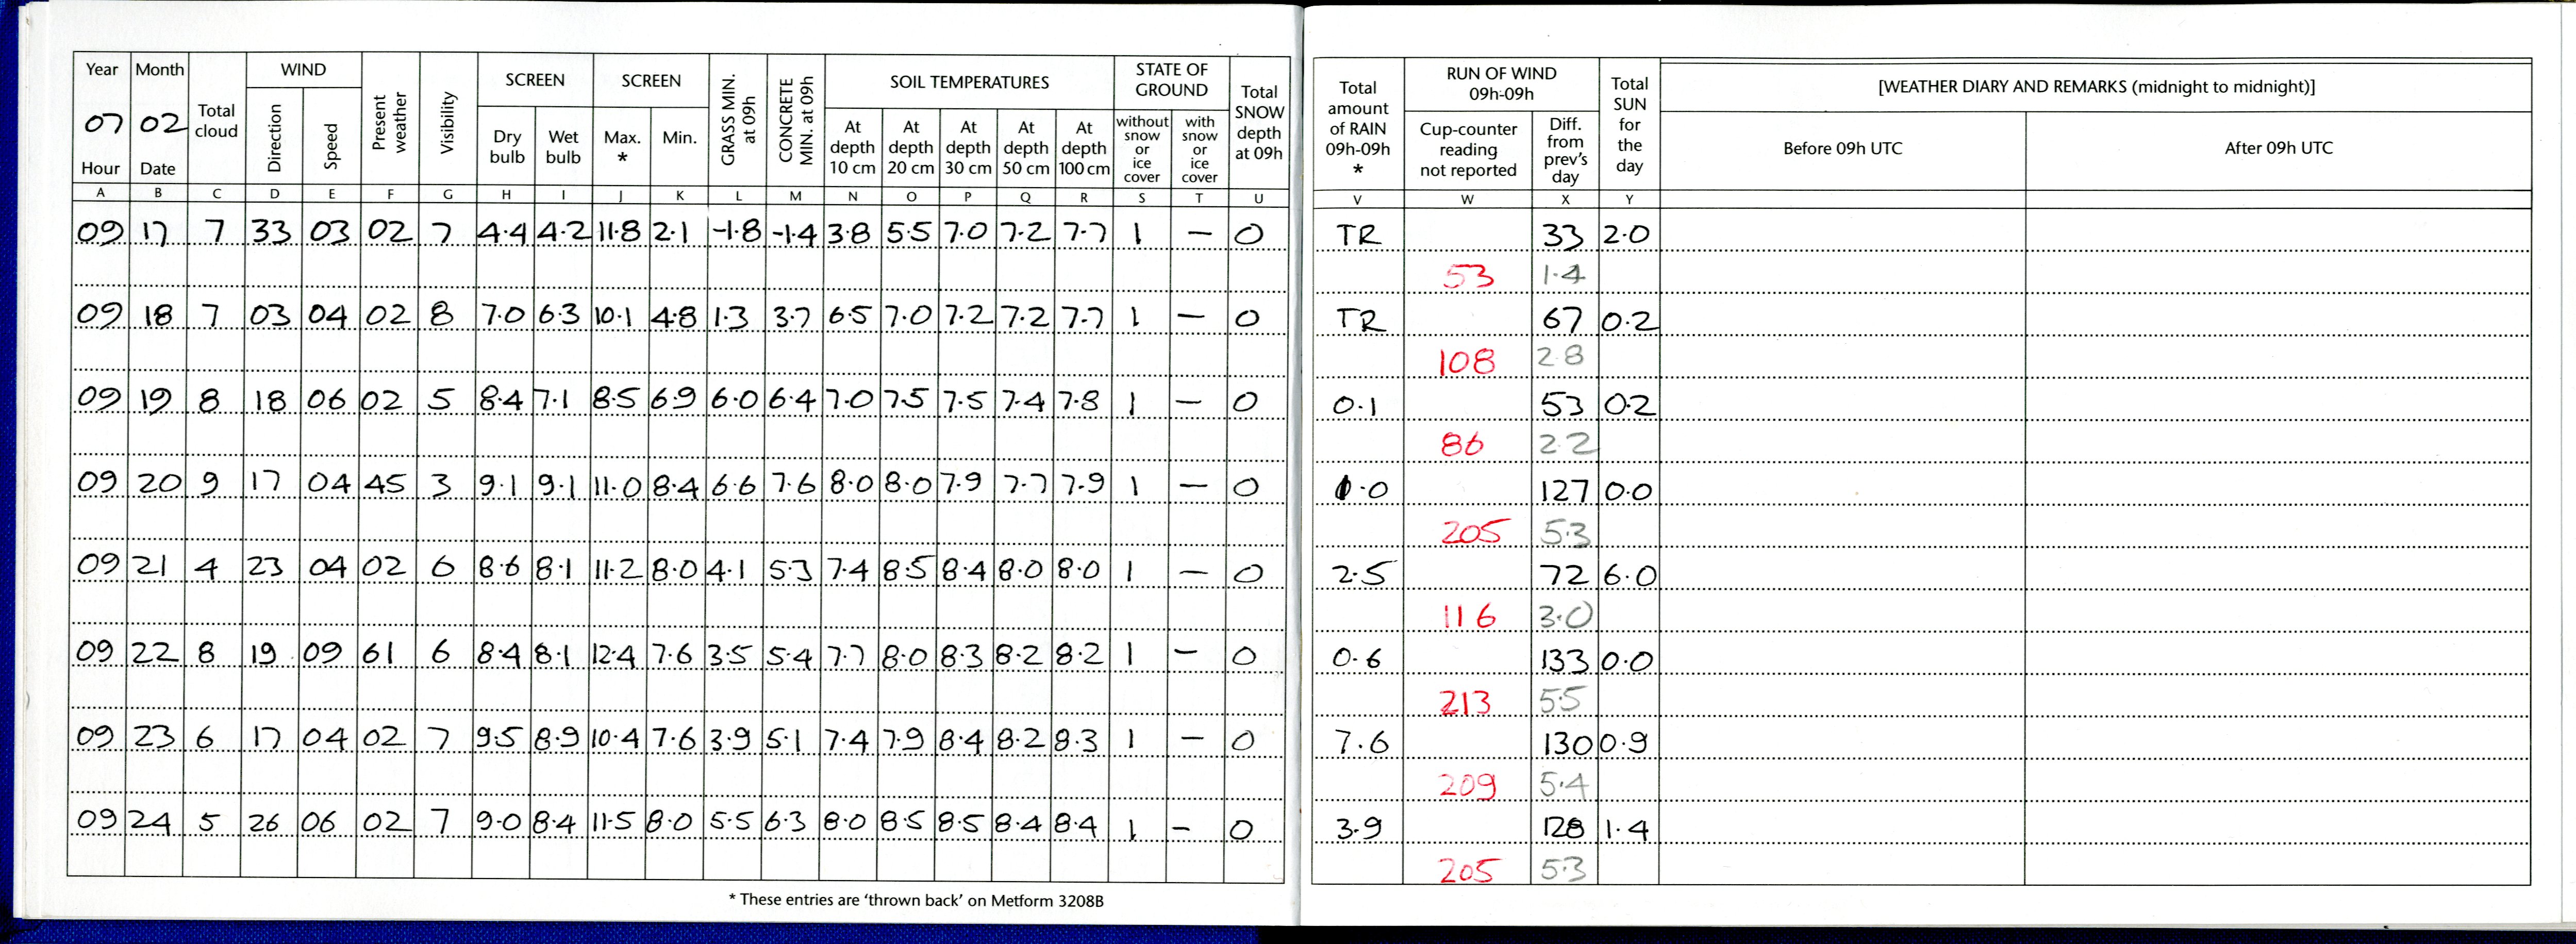 Year Month Total cloud WIND Present weather Visibility SCREEN SCREEN GRASS MIN. at 09h CONCRETE MIN. at 09h SOIL TEMPERATURES STATE OF GROUND Total SNOW depth at 09h Total amount of RAIN 09h-09h * RUN OF WIND 09h-09h Total SUN for the day [WEATHER DIARY AND REMARKS (midnight to midnight)]
07 02 Direction Speed Dry bulb Wet bulb Max. * Min. At depth 10 cm At depth 20 cm At depth 30 cm At depth 50 cm At depth 100 cm without snow or ice cover with snow or ice cover Cup-counter reading not reported Diff. from prev's day Before 09h UTC After 09h UTC
Hour Date
A B C D E F G H I J K L M N O P Q R S T U V W X Y
09 17 7 33 03 02 7 4.4 4.2 11.8 2.1 -1.8 -1.4 3.8 5.5 7.0 7.2 7.7 1 — 0 TR 33 2.0
53 1.4
09 18 7 03 04 02 8 7.0 6.3 10.1 4.8 1.3 3.7 6.5 7.0 7.2 7.2 7.7 1 — 0 TR 67 0.2
108 2.8
09 19 8 18 06 02 5 8.4 7.1 8.5 6.9 6.0 6.4 7.0 7.5 7.5 7.4 7.8 1 — 0 0.1 53 0.2
86 2.2
09 20 9 17 04 45 3 9.1 9.1 11.0 8.4 6.6 7.6 8.0 8.0 7.9 7.7 7.9 1 — 0 127 0.0
205 5.3
09 21 4 23 04 02 6 8.6 8.1 11.2 8.0 4.1 5.3 7.4 8.5 8.4 8.0 8.0 1 — 0 2.5 72 6.0
116 3.0
09 22 8 19 09 61 6 8.4 8.1 12.4 7.6 3.5 5.4 7.7 8.0 8.3 8.2 8.2 1 — 0 0.6 133 0.0
213 5.5
09 23 6 17 04 02 7 9.5 8.9 10.4 7.6 3.9 5.1 7.4 7.9 8.4 8.2 8.3 1 — 0 7.6 130 0.9
209 5.4
09 24 5 26 06 02 7 9.0 8.4 11.5 8.0 5.5 6.3 8.0 8.5 8.5 8.4 8.4 1 — 0 3.9 128 1.4
205 5.3
* These entries are 'thrown back' on Metform 3208B